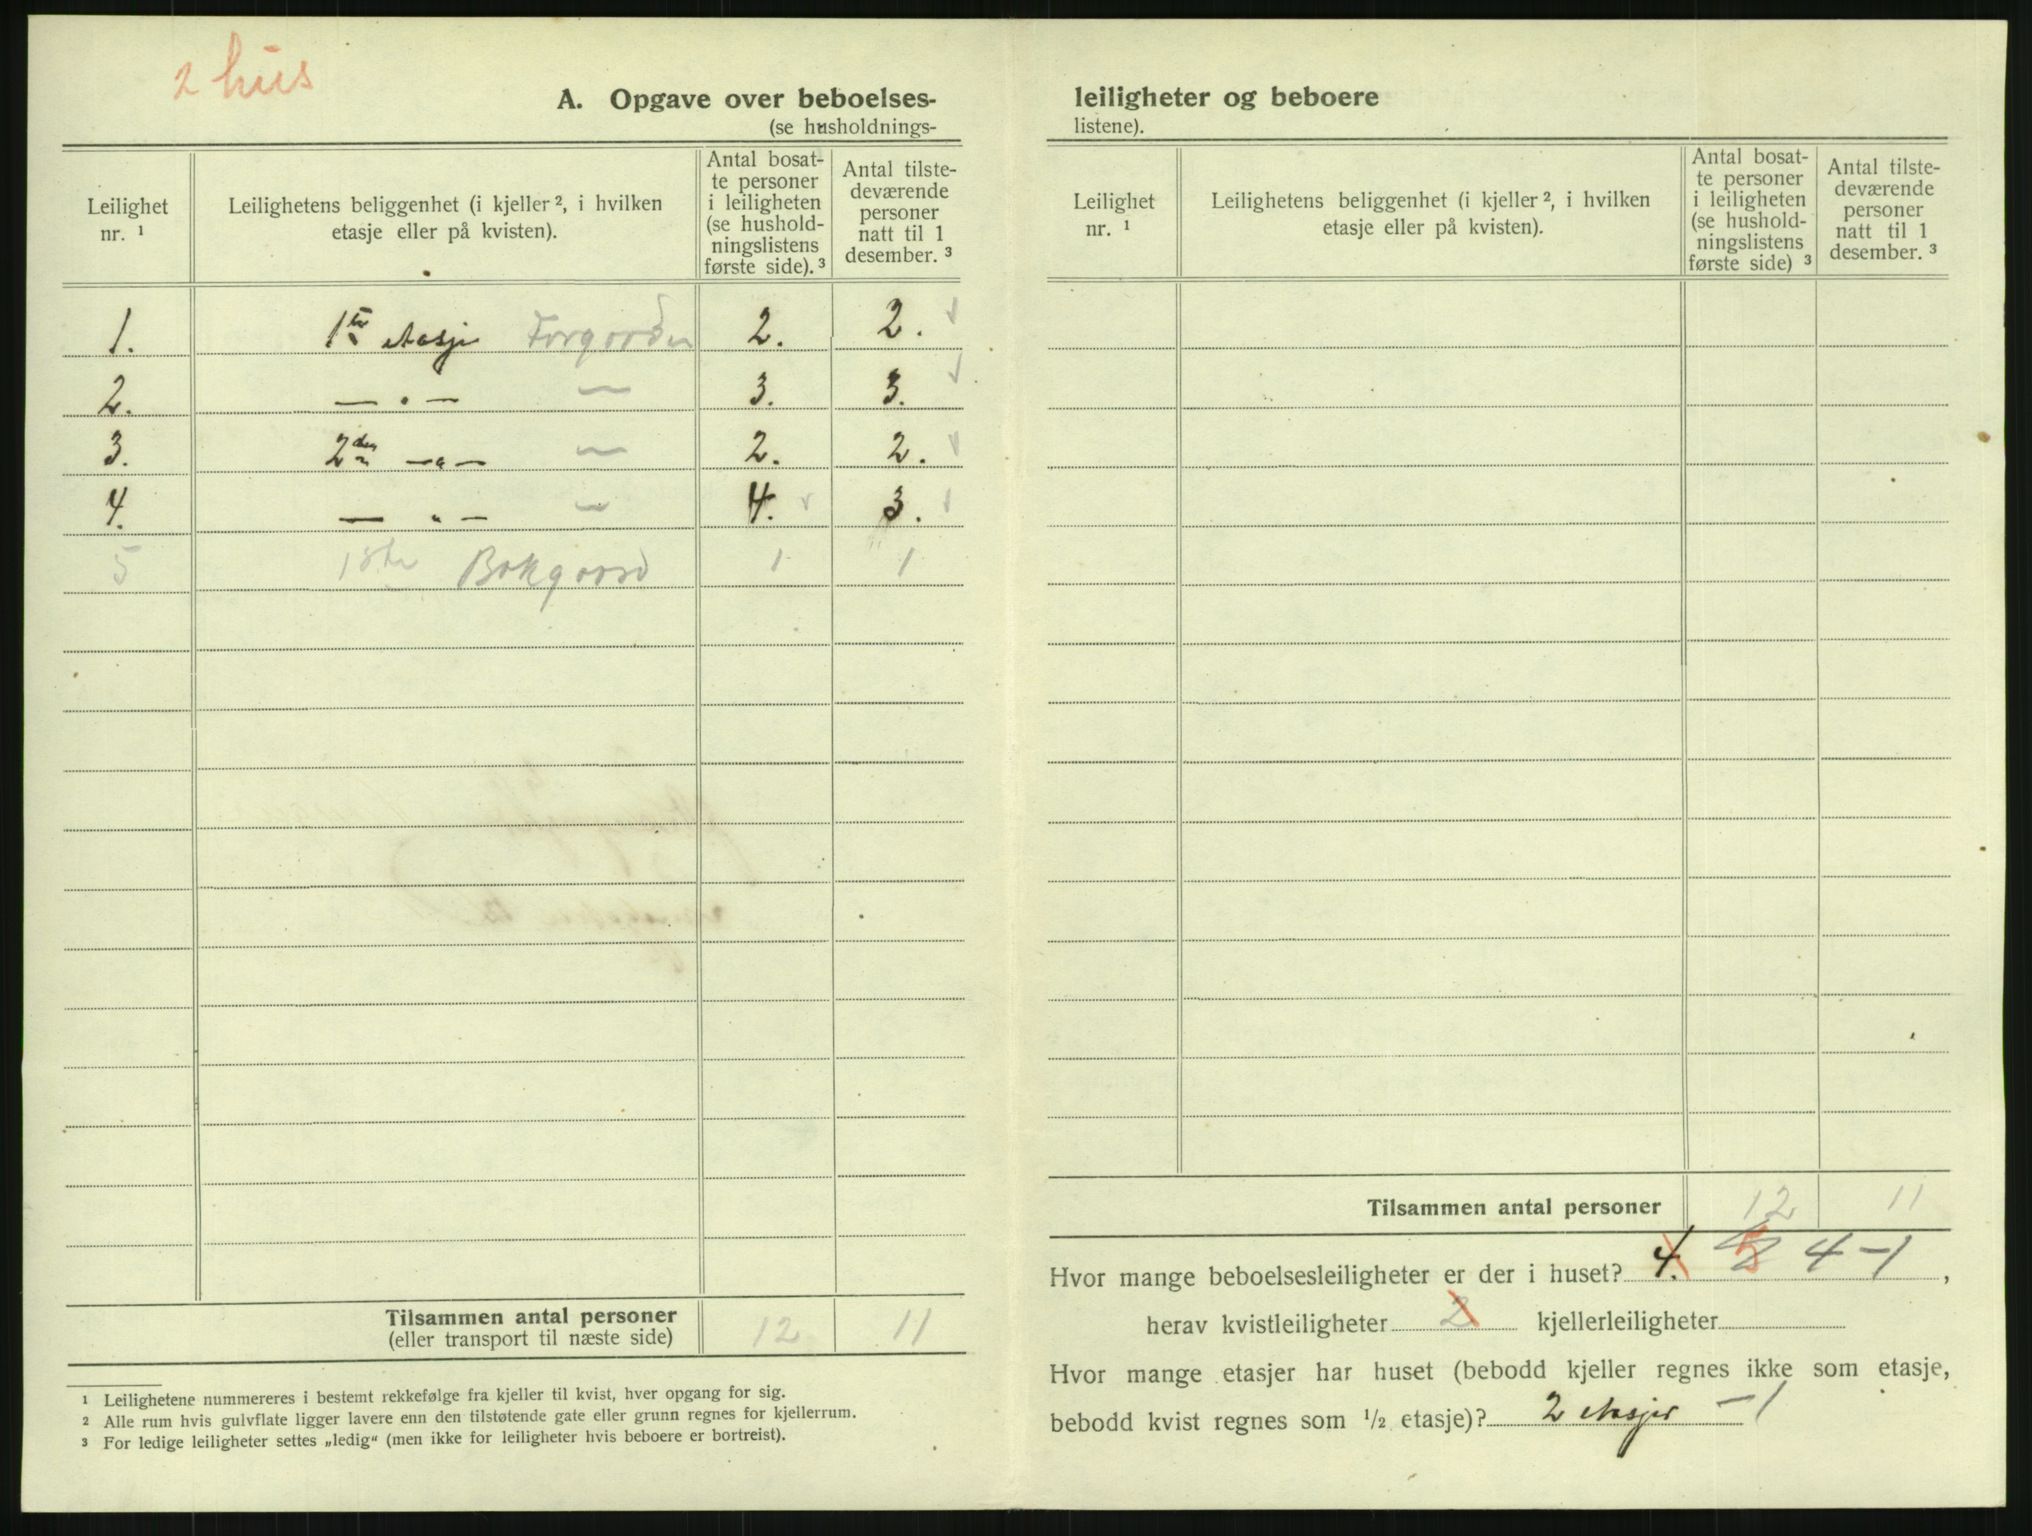 2 hus
A. Opgave over beboelses-
(se husholdnings-
Leilighet
nr. ¹
Leilighetens beliggenhet (i kjeller ², i hvilken
etasje eller på kvisten).
Antal bosat-
te personer
i leiligheten
(se hushold-
ningslistens
første side). ³
Antal tilste-
deværende
personer
natt til 1
desember. ³
1. 1ste etasje Forgoorden 2. 2.
2. — " — — 3. 3.
3. 2den — " — — 2. 2.
4. — " — — 4. 3.
5 1ste Bokgoord 1 1
Tilsammen antal personer 12 11
(eller transport til næste side)
¹ Leilighetene nummereres i bestemt rekkefølge fra kjeller til kvist, hver opgang for sig.
² Alle rum hvis gulvflate ligger lavere enn den tilstøtende gate eller grunn regnes for kjellerrum.
³ For ledige leiligheter settes „ledig“ (men ikke for leiligheter hvis beboere er bortreist).
leiligheter og beboere
listene).
Leilighet
nr. ¹
Leilighetens beliggenhet (i kjeller ², i hvilken
etasje eller på kvisten).
Antal bosat-
te personer
i leiligheten
(se hushold-
ningslistens
første side) ³
Antal tilste-
deværende
personer
natt til 1
desember. ³
Tilsammen antal personer 12 11
Hvor mange beboelsesleiligheter er der i huset? 4. 5 4 - 1,
herav kvistleiligheter 2 kjellerleiligheter
Hvor mange etasjer har huset (bebodd kjeller regnes ikke som etasje,
bebodd kvist regnes som ½ etasje)? 2 etasjer - 1